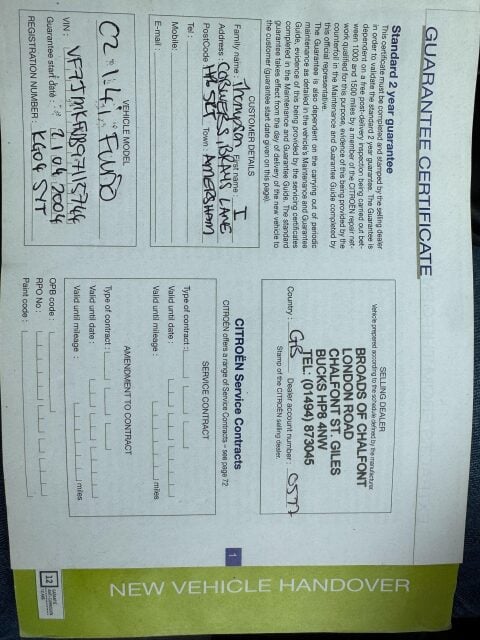 GUARANTEE CERTIFICATE
Standard 2 year guarantee
This certificate must be completed and stamped by the selling dealer
in order to validate the standard 2 year guarantee. The Guarantee is
dependent on a free post-delivery inspection being carried out bet-
ween 1000 and 1500 miles by a member of the CITROËN repair net-
work qualified for this purpose, evidence of this being provided by the
counterfoil in the Maintenance and Guarantee Guide completed by
this official representative.
The Guarantee is also dependent on the carrying out of periodic
maintenance as detailed in the vehicle's Maintenance and Guarantee
Guide, evidence of this being provided by the servicing certificates
completed in the Maintenance and Guarantee Guide. The standard
guarantee takes effect from the day of delivery of the new vehicle to
the customer (guarantee start date given on this page).
CUSTOMER DETAILS
Family name : Thompson First name I
Address : CORNERS, BRAYS LANE
PostCode HP6 Town : AMERSHAM
Tel :
Mobile:
E-mail :
VEHICLE MODEL
C2 1.4i FURIO
VIN :
Guarantee start date : 21 04 2004
REGISTRATION NUMBER : KG04 SYT
SELLING DEALER
Vehicle prepared according to the schedule defined by the manufacturer.
BROADS OF CHALFONT
LONDON ROAD
CHALFONT ST. GILES
BUCKS HP8 4NW
TEL: (01494) 873045
Country : GB Dealer account number :
Stamp of the CITROËN selling dealer.
CITROËN Service Contracts
CITROËN offers a range of Service Contracts - see page 72
SERVICE CONTRACT
Type of contract :
Valid until date :
Valid until mileage : miles
AMENDMENT TO CONTRACT
Type of contract :
Valid until date :
Valid until mileage : miles
OPB code :
RPO No :
Paint code :
1
NEW VEHICLE HANDOVER
12